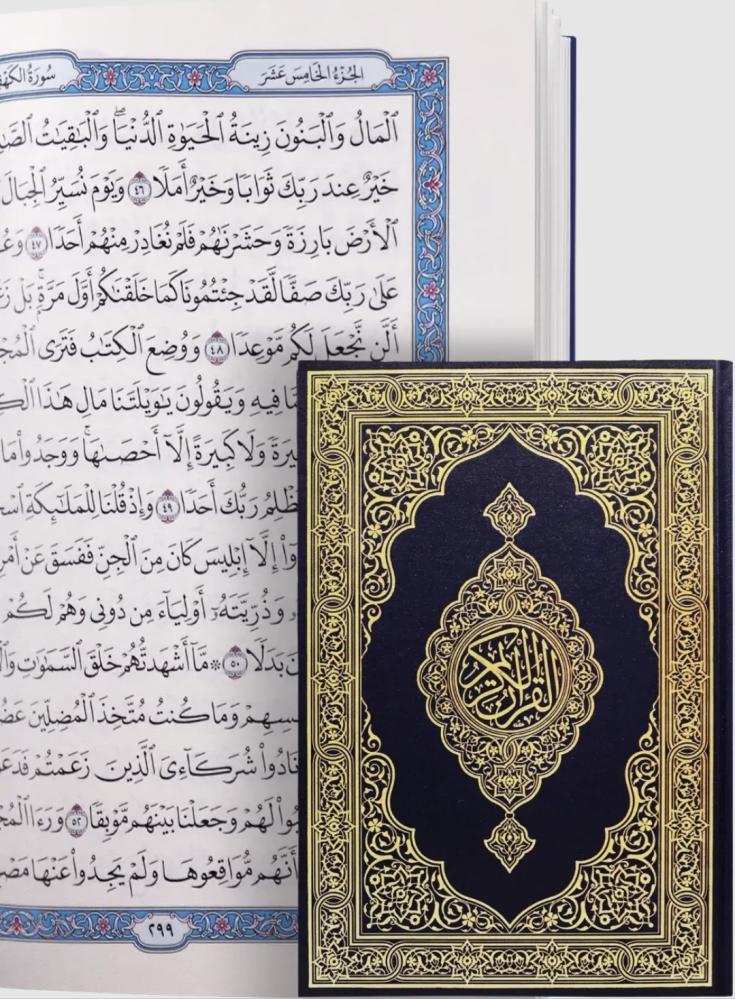 الجُزْءُ الخَامِسَ عَشَرَ سُورَةُ
ٱلْمَالُ وَٱلْبَنُونَ زِينَةُ ٱلْحَيَوٰةِ ٱلدُّنْيَاۖ وَٱلْبَٰقِيَٰتُ
خَيْرٌ عِندَ رَبِّكَ ثَوَابًا وَخَيْرٌ أَمَلًا ٤٦ وَيَوْمَ نُسَيِّرُ ٱلْجِبَالَ
ٱلْأَرْضَ بَارِزَةً وَحَشَرْنَٰهُمْ فَلَمْ نُغَادِرْ مِنْهُمْ أَحَدًا ٤٧
عَلَىٰ رَبِّكَ صَفًّا لَّقَدْ جِئْتُمُونَا كَمَا خَلَقْنَٰكُمْ أَوَّلَ مَرَّةٍۭۚ بَلْ
أَلَّن نَّجْعَلَ لَكُم مَّوْعِدًا ٤٨ وَوُضِعَ ٱلْكِتَٰبُ فَتَرَى
فِيهِ وَيَقُولُونَ يَٰوَيْلَتَنَا مَالِ هَٰذَا
وَلَا كَبِيرَةً إِلَّآ أَحْصَىٰهَاۚ وَوَجَدُوا۟ مَا
رَبُّكَ أَحَدًا ٤٩ وَإِذْ قُلْنَا لِلْمَلَٰٓئِكَةِ
إِلَّآ إِبْلِيسَ كَانَ مِنَ ٱلْجِنِّ فَفَسَقَ عَنْ أَمْرِ
وَذُرِّيَّتَهُۥٓ أَوْلِيَآءَ مِن دُونِى وَهُمْ لَكُمْ
بَدَلًا ٥٠ ۞ مَّآ أَشْهَدتُّهُمْ خَلْقَ ٱلسَّمَٰوَٰتِ
وَمَا كُنتُ مُتَّخِذَ ٱلْمُضِلِّينَ
شُرَكَآءِىَ ٱلَّذِينَ زَعَمْتُمْ
لَهُمْ وَجَعَلْنَا بَيْنَهُم مَّوْبِقًا ٥٢
أَنَّهُم مُّوَاقِعُوهَا وَلَمْ يَجِدُوا۟ عَنْهَا
٢٩٩
القرآن الكريم